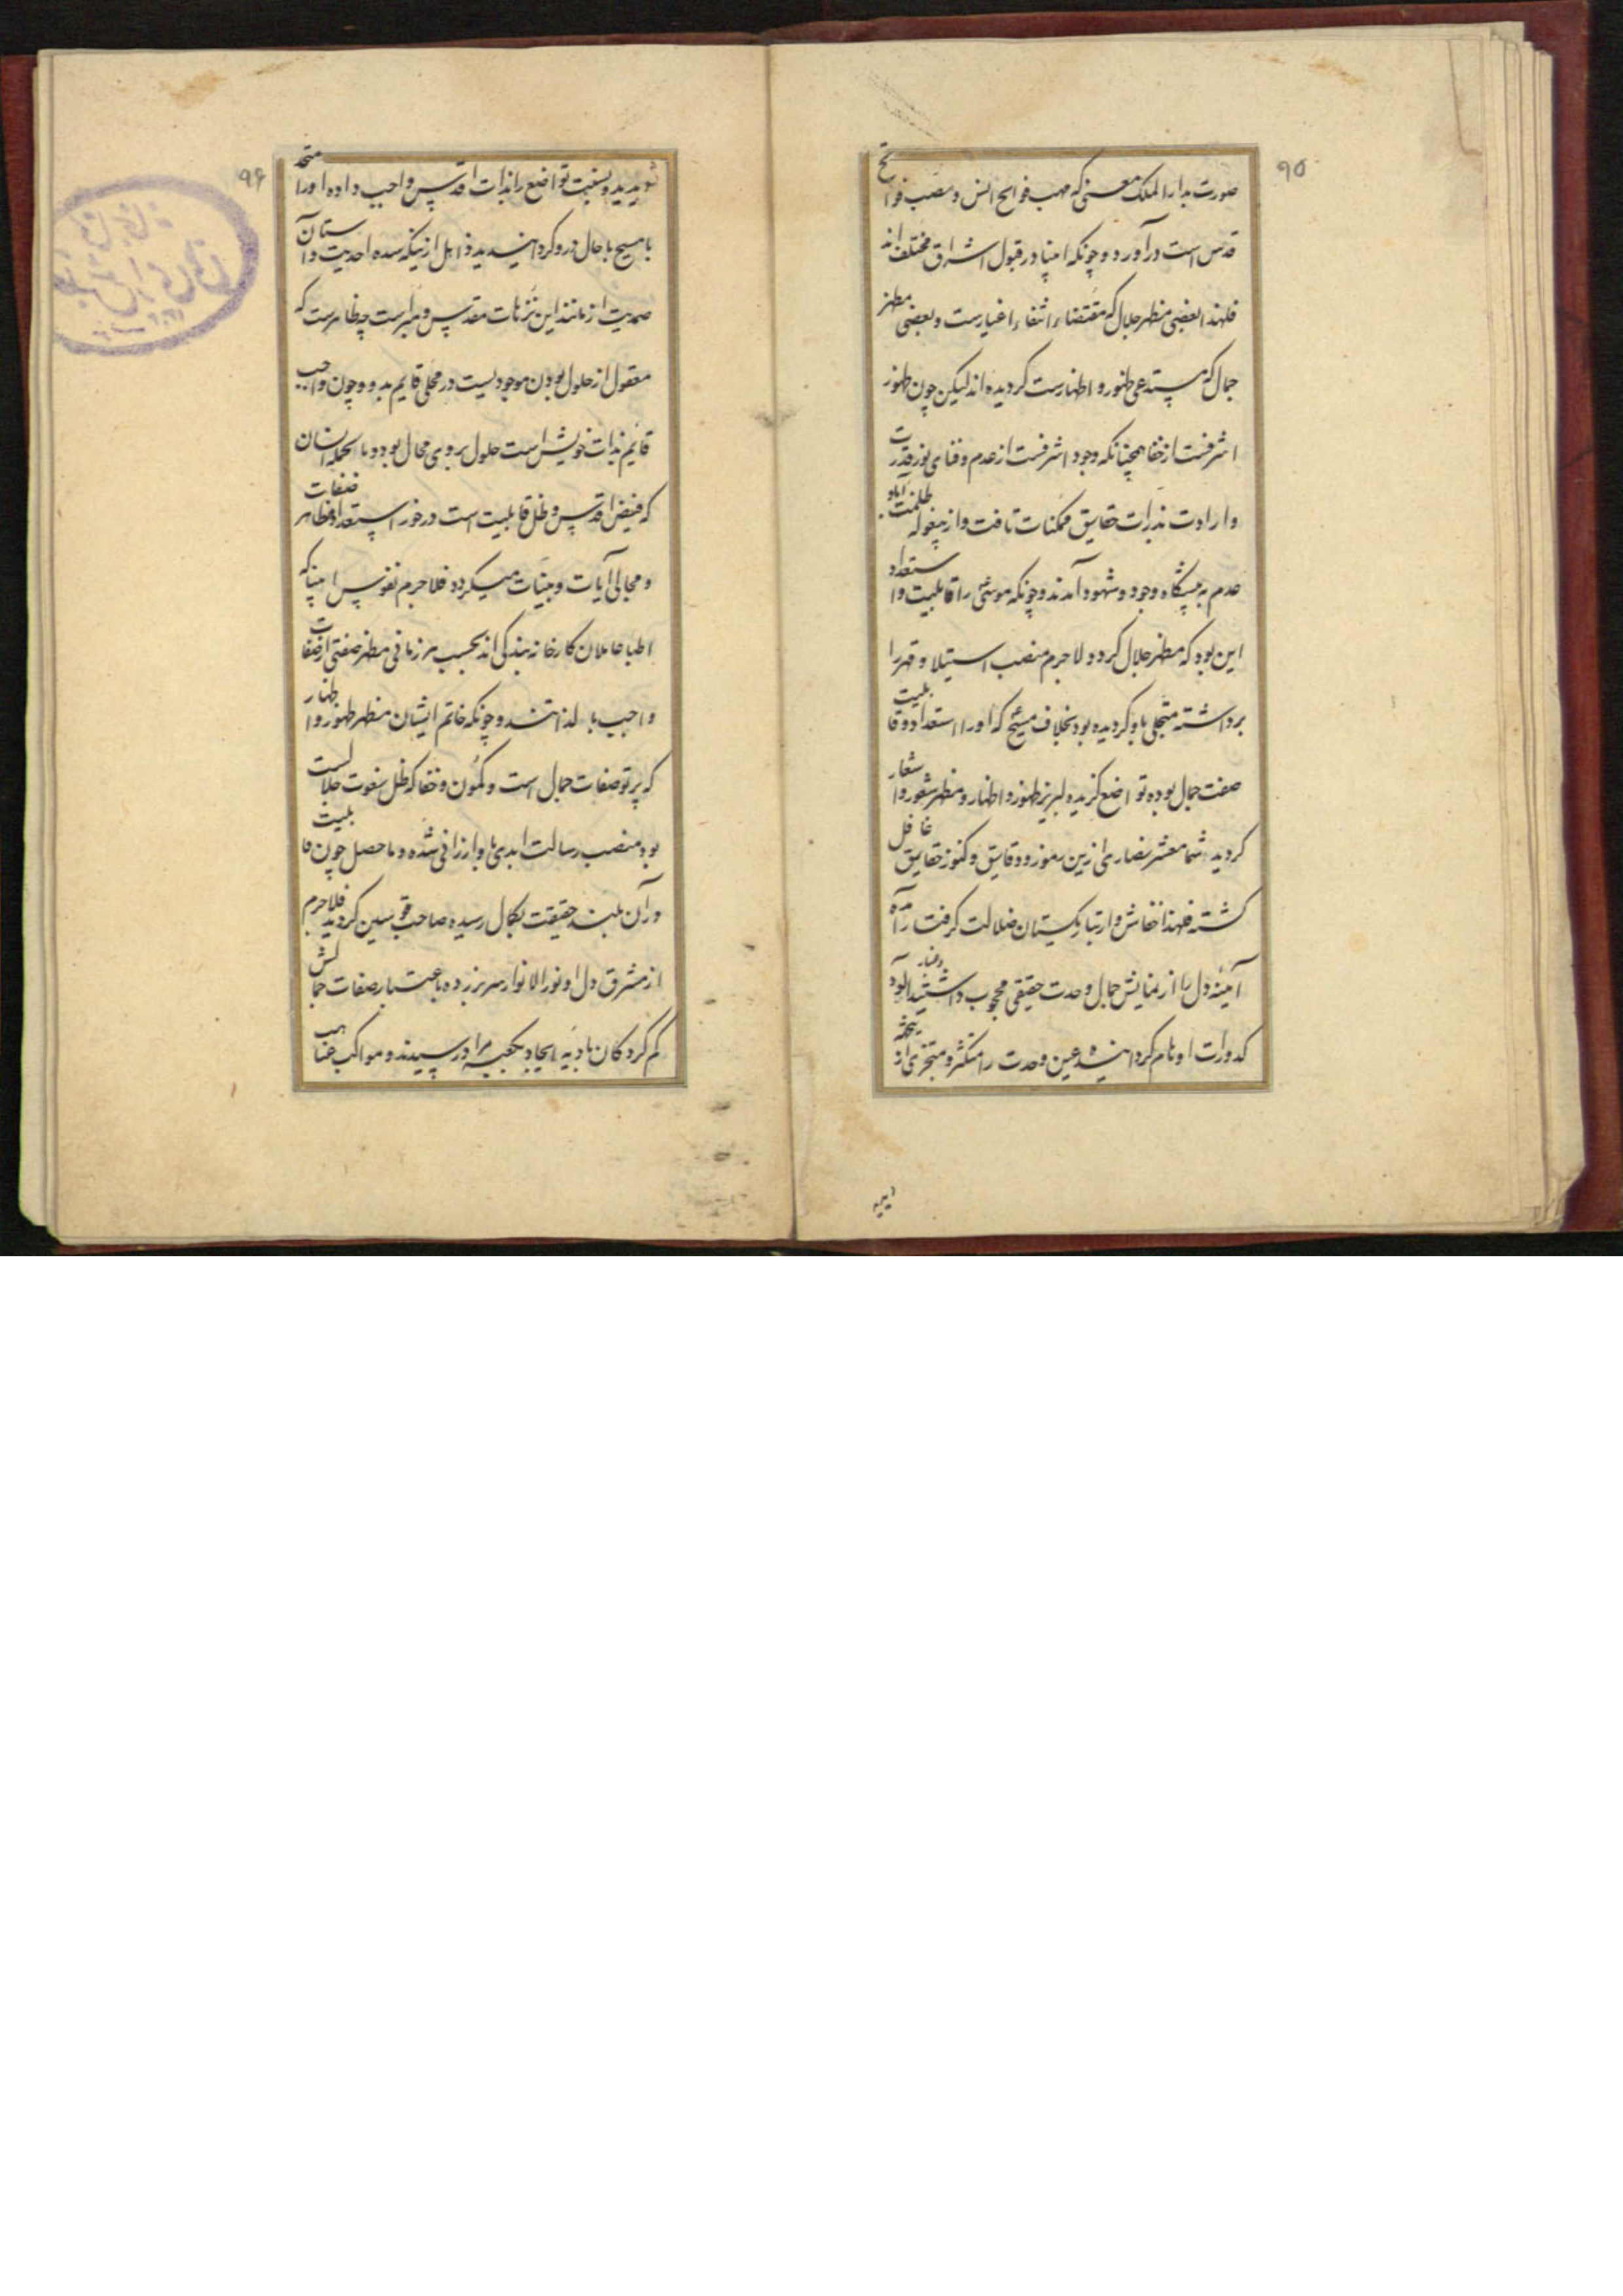 ۹۵
صورت بدار الملک معنی که مهب فوایح انس و مصب فواتح
قدس است درآورد و چونکه انبیا در قبول اشراق مختلف‌اند
فلهذا بعضی مظهر جلال که مقتضاء انتفاء اغیارست و بعضی مظهر
جمال که مستدعی ظهور و اظهارست گردیده‌اند لیکن چون ظهور
اشرفست از خفا همچنانکه وجود اشرفست از عدم و فنای نور قدرت
و ارادت بذرات حقایق ممکنات تافت و از بیغوله ظلمت آباد
عدم به پیشگاه وجود و شهود آمدند و چونکه موسی را قابلیت و استعداد
این بود که مظهر جلال گردد لاجرم منصب استیلا و قهر را
برداشته متجلی باو گردیده بود بخلاف مسیح که او را استعداد و قابلیت
صفت جمال بوده تواضع گزیده لبریز ظهور و اظهار و مظهر شعور و اشعار
گردید شما معشر نصاری ازین رموز و دقایق و کنوز حقایق غافل
گشته فلهذا خفاش وار تباریکستان ضلالت گرفت رآمده
آینه دل را از نمایش جمال وحدت حقیقی محجوب داشتید آلود وغبار
کدورات اوهام گردانیده عین وحدت را متکثر و متجزی از
۹۶
نوید ید و بسفبت تواضع را بذات اقدس واجب داده او را متحد
با مسیح با حال درو گردانیدید ذاهل ازینکه سده احدیت و آستان
صمدیت از مانند این نزهات مقدس و مبراست چه ظاهرست که
معقول از حلول بودن موجودیست در محلی قایم بدو و چون واجب
قایم بذات خویش است حلول بر وی محال بود و بالجمله انسان
که فیض اقدس و ظل قابلیت است در خور استعداد مظاهر صفات
و مجالی آیات و بینات میگردد فلاجرم نفوس انبیا که
اطبا عاملان کارخانه بندگی‌اند بحسب هر زمانی مظهر صفتی از صفات
واجب با لذاتند و چونکه خاتم ایشان مظهر ظهور و اظهار
که پرتو صفات جمال است و کمون و خفا که ظل نعوت جلالست
بود منصب رسالت ابدی باو ارزانی شده و ماحصل چون قابلیت
در آن بلند حقیقت بکمال رسیده صاحب قوسین گردید فلاجرم
از مشرق دل او نور الانوار سر بر زده باعتبار صفات جمالش
گم گردگان بادیه ایجاد بکعبه مراد رسیدند و مواکب غیاهب